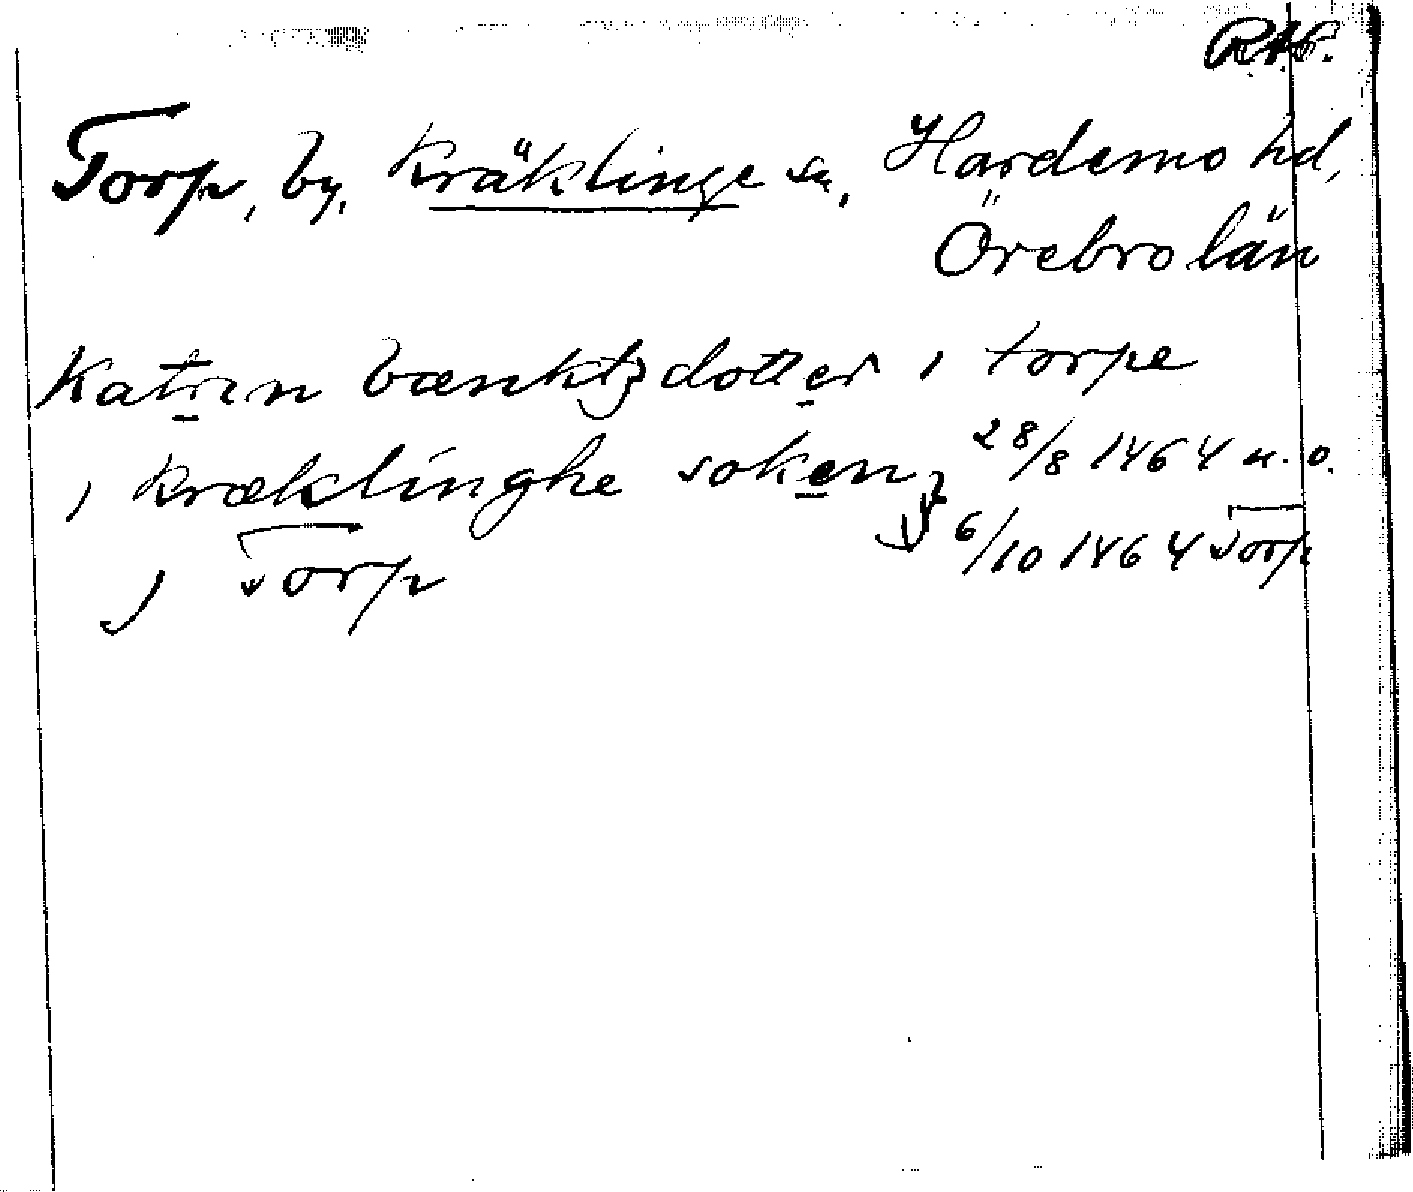 RAP.
Torp, by, Kräklinge sn, Hardemo hd,
Örebro län
Katrin bænktz dotter i torpe
i kræklinghe soken 28/8 1464 u.o.
j Torp 6/10 1464 Torp